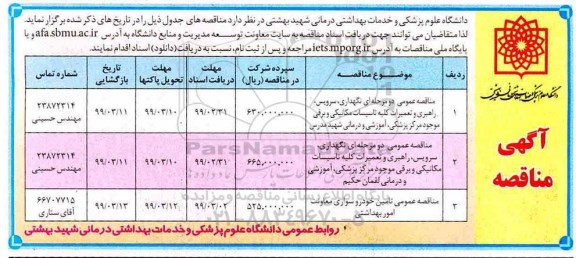 دانشگاه علوم پزشکی و خدمات بهداشتی درمانی شهید بهشتی در نظر دارد مناقصه های جدول ذیل را در تاریخ های ذکر شده برگزار نماید.
لذا متقاضیان می توانند جهت دریافت اسناد مناقصه به سایت معاونت توسعه مدیریت و منابع دانشگاه به آدرس afa.sbmu.ac.ir و یا
پایگاه ملی مناقصات به آدرس iets.mporg.ir مراجعه و پس از ثبت نام، نسبت به دریافت (دانلود) اسناد اقدام نمایند.
آگهی
مناقصه
ردیف | موضوع مناقصه | سپرده شرکت در مناقصه (ریال) | مهلت دریافت اسناد | مهلت تحویل پاکتها | تاریخ بازگشایی | شماره تماس
۱ | مناقصه عمومی دو مرحله ای نگهداری، سرویس، راهبری و تعمیرات کلیه تاسیسات مکانیکی و برقی موجود مرکز پزشکی، آموزشی و درمانی شهید مدرس | ۶۳۰,۰۰۰,۰۰۰ | ۹۹/۰۲/۳۱ | ۹۹/۰۳/۱۰ | ۹۹/۰۳/۱۱ | ۲۳۸۷۲۳۱۴ مهندس حسینی
۲ | مناقصه عمومی دو مرحله ای نگهداری سرویس، راهبری و تعمیرات کلیه تاسیسات مکانیکی و برقی موجود مرکز پزشکی، آموزشی و درمانی لقمان حکیم | ۶۶۵,۰۰۰,۰۰۰ | ۹۹/۰۲/۳۱ | ۹۹/۰۳/۱۰ | ۹۹/۰۳/۱۱ | ۲۳۸۷۲۳۱۴ مهندس حسینی
۳ | مناقصه عمومی تامین خودرو سواری معاونت امور بهداشتی | ۵۲۵,۰۰۰,۰۰۰ | ۹۹/۰۳/۰۲ | ۹۹/۰۳/۱۲ | ۹۹/۰۳/۱۳ | ۶۶۷۰۷۷۱۵ آقای ستاری
روابط عمومی دانشگاه علوم پزشکی و خدمات بهداشتی درمانی شهید بهشتی
ParsNamadData